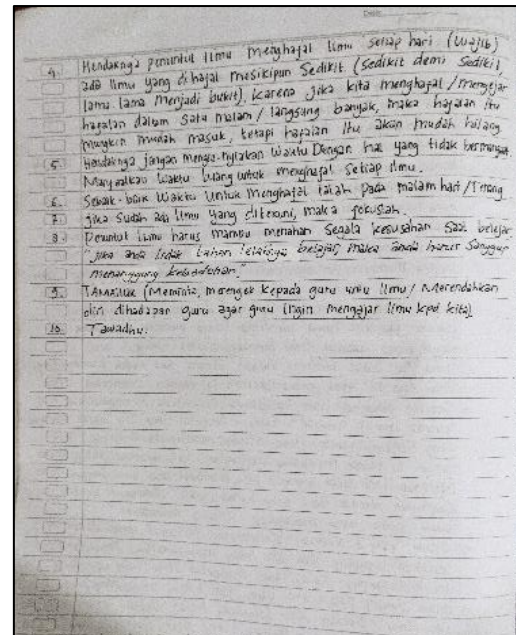 4. Hendaknya penuntut ilmu menghafal ilmu setiap hari (wajib)
ada ilmu yang dihafal meskipun sedikit (sedikit demi sedikit,
lama lama menjadi bukit), karena jika kita menghafal / mengejar
hafalan dalam satu malam / langsung banyak, maka hafalan itu
mungkin mudah masuk, tetapi hafalan itu akan mudah hilang.
5. Hendaknya jangan menyia-nyiakan waktu Dengan hal yang tidak bermanfaat.
Manfaatkan waktu luang untuk menghafal setiap ilmu.
6. Sebaik-baik waktu untuk menghafal ialah pada malam hari /
7. Jika sudah ada ilmu yang ditekuni, maka fokuslah.
8. Penuntut ilmu harus mampu menahan segala kesusahan saat belajar
"Jika anda tidak tahan lelahnya belajar, maka anda harus sanggup
menanggung kebodohan."
9. TAMALUK (Meminta, merengek kepada guru untu ilmu / Merendahkan
diri dihadapan guru agar guru ingin mengajar ilmu kpd kita)
10. Tawadhu.